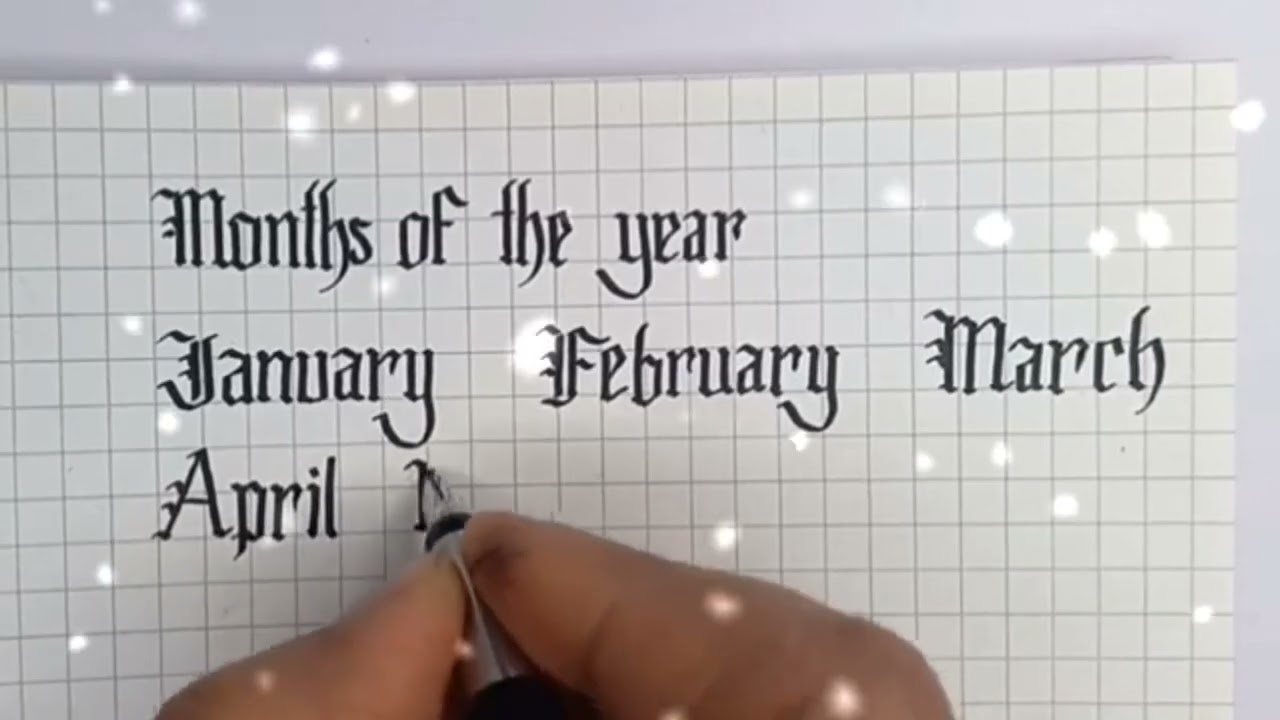 Months of the year
January February March
April